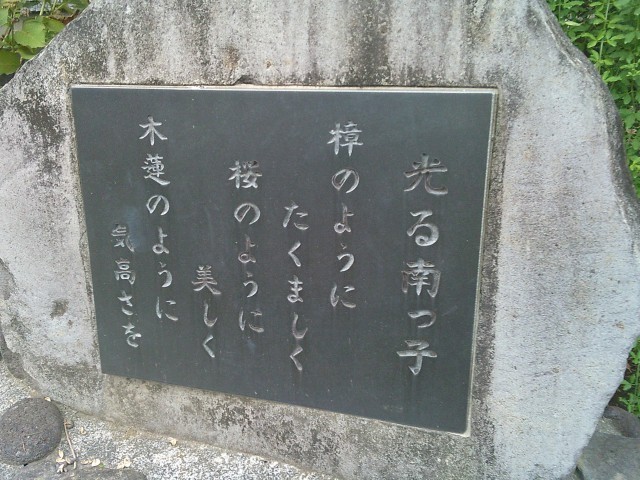 光る南っ子
樟のように
たくましく
桜のように
美しく
木蓮のように
気高さを